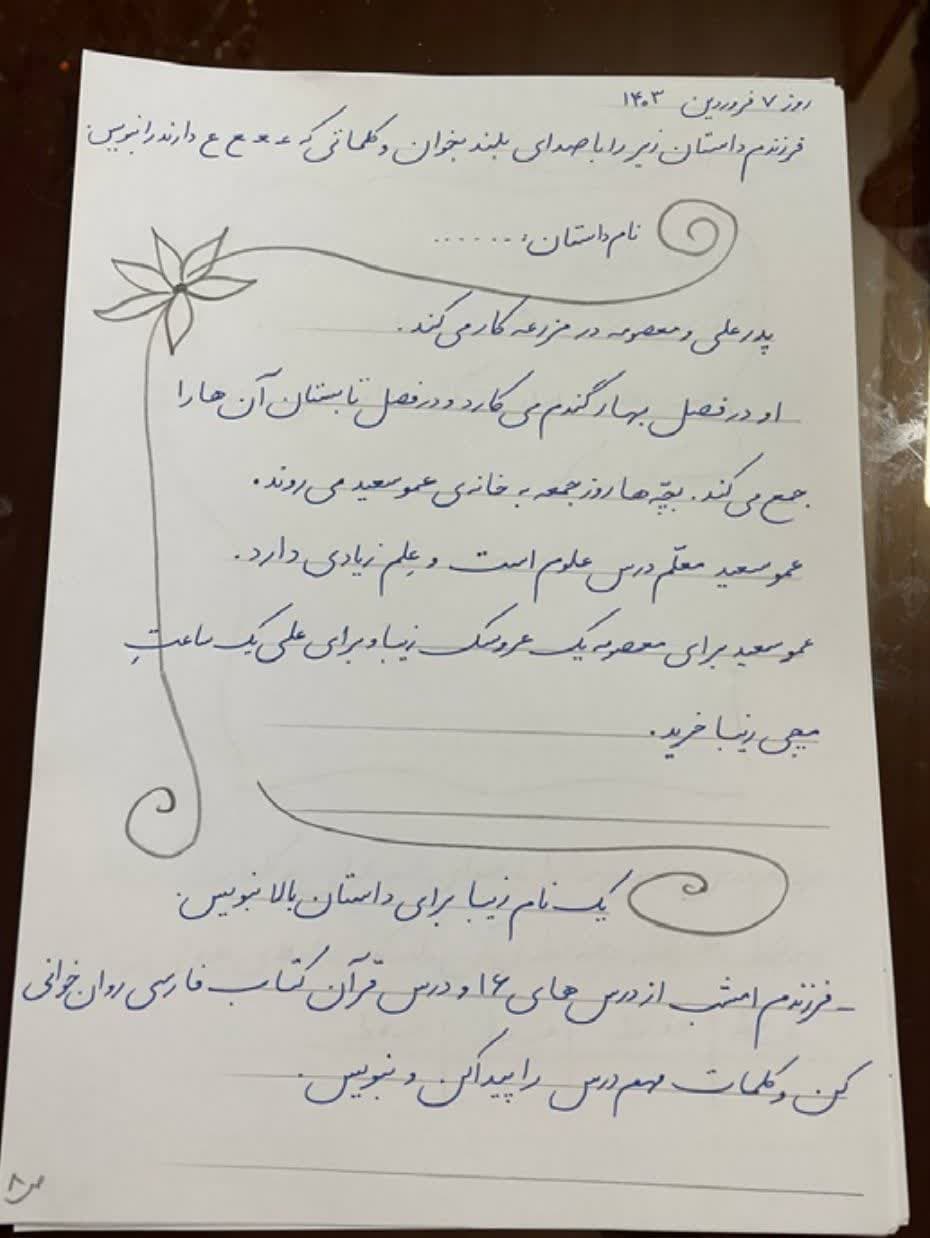 روز ۷ فروردین ۱۴۰۳
فرزندم داستان زیر را با صدای بلند بخوان و کلماتی که عـ ـعـ ـع ع دارند را بنویس.
نام داستان: .......
پدر علی و معصومه در مزرعه کار می کند.
او در فصل بهار گندم می کارد و در فصل تابستان آن ها را
جمع می کند. بچّه ها روز جمعه به خانه ی عمو سعید می روند.
عمو سعید معلّم درس علوم است و عِلم زیادی دارد.
عمو سعید برای معصومه یک عروسک زیبا و برای علی یک ساعتِ
مچی زیبا خرید.
یک نام زیبا برای داستان بالا بنویس.
- فرزندم امشب از درس های ۱۶ و درس قرآن کتاب فارسی روان خوانی
کن و کلمات مهم درس را پیدا کن و بنویس.
ص۸